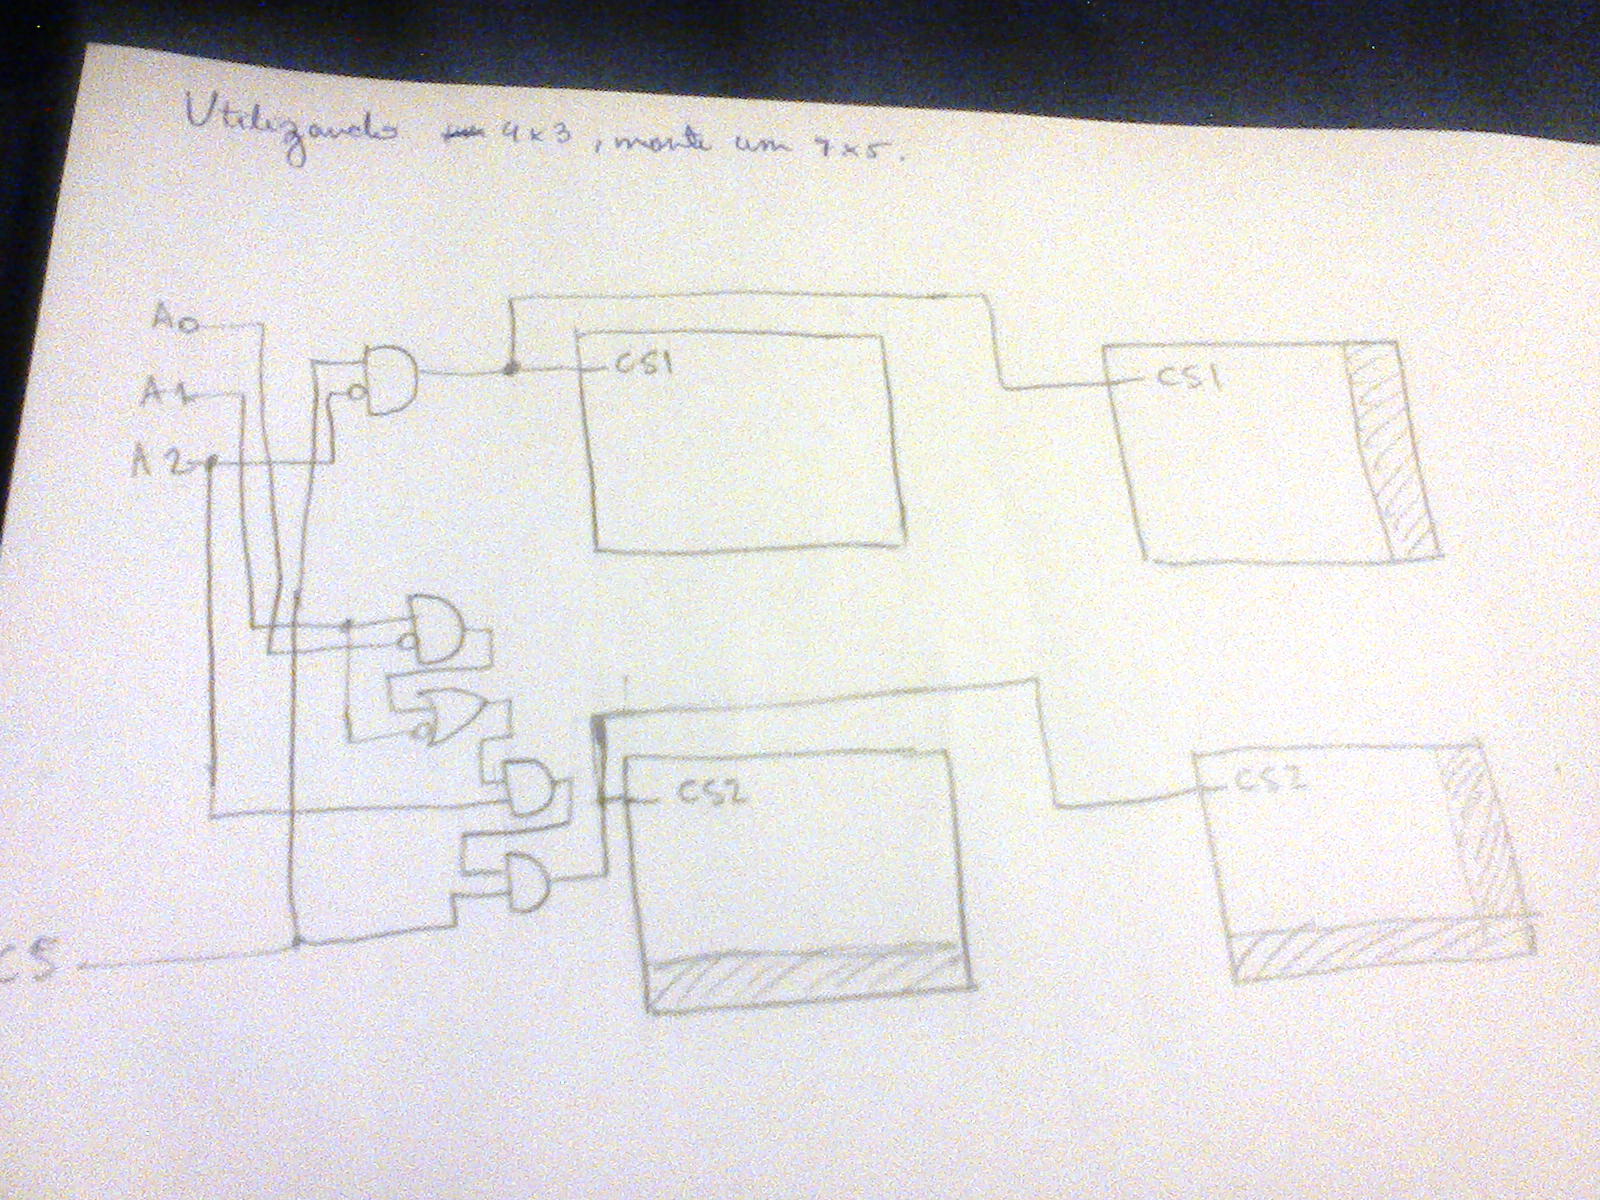 Utilizando 4x3, monte um 7x5.
A0
A1
A2
CS
CS1
CS1
CS2
CS2